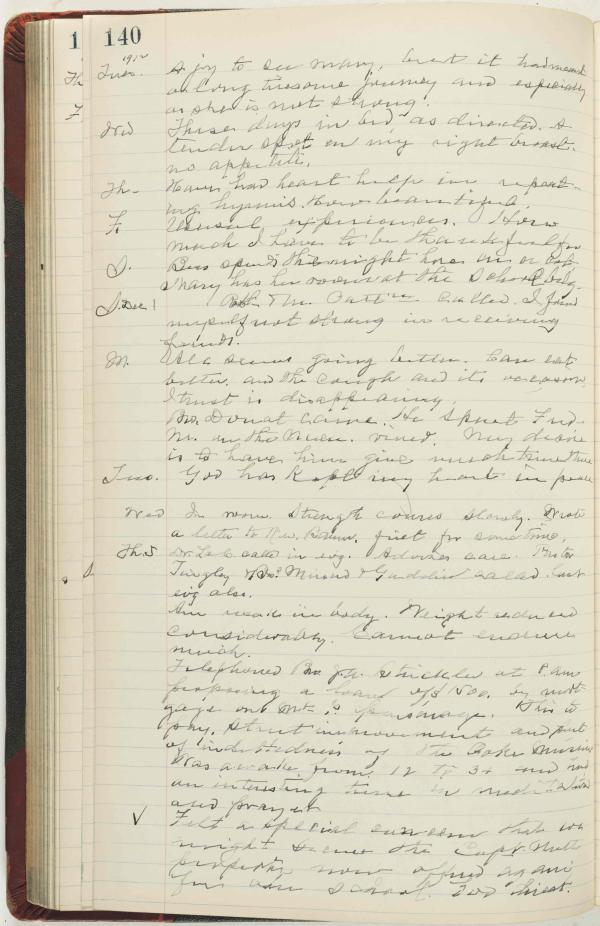 1 140
1912
Th Tues. A joy to see many, but it had meant
a long tiresome journey and especially
F as she is not strong.
Wed These days in bed as directed. A
tender spot on my right breast.
no appetite.
Th- Have had heart help in repeat-
ing hymns. How beautiful.
F. Unusual experiences. How
much I have to be thankful for
S. Bess spends the night here on a cot
Mary has her room at the School bdg.
S. Dec 1 called. I find
myself not strong in receiving
friends.
M. Ada seems going better. Can eat
better, and the cough and its occasion
I trust is disappearing.
Bro. Donat came. He spent Sund
M. in the vined. My desire
is to have him give much time there
Tues. God has kept my heart in peace
Wed In room. Strength comes slowly. Wrote
a letter to Rev. first for sometime.
Th. 5 Dr. calls in evg. Advises care.
called last
evg also.
Am weak in body. Weight reduced
considerably. Cannot endure
much.
Telephoned Bro J.A. Strickler at 8 am
proposing a loan of $1500. by mort-
gage on parsonage. This to
pay. Street improvement and part
of indebtedness of the
Was awake from 12 to 3+ and had
an interesting time in meditation
and prayer
√ Felt a special concern that we
might secure the Capt.
property now offered again
for our school.